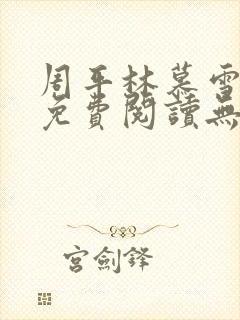 周平林慕雪
免費閱讀無
宮劍鋒